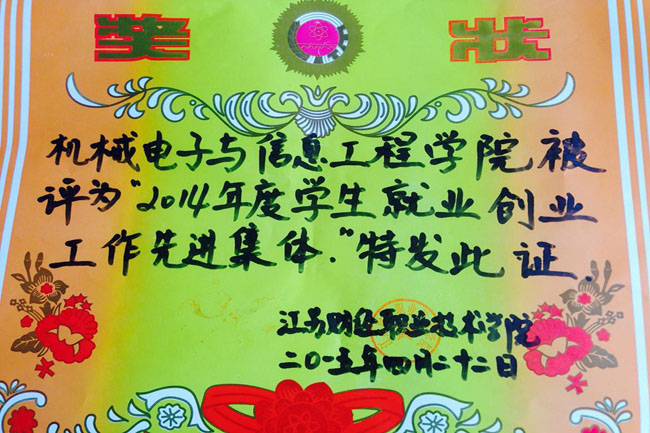 奖 状
机械电子与信息工程学院被
评为"2014年度学生就业创业
工作先进集体."特发此证.
江苏财经职业技术学院
二〇一五年四月二十二日